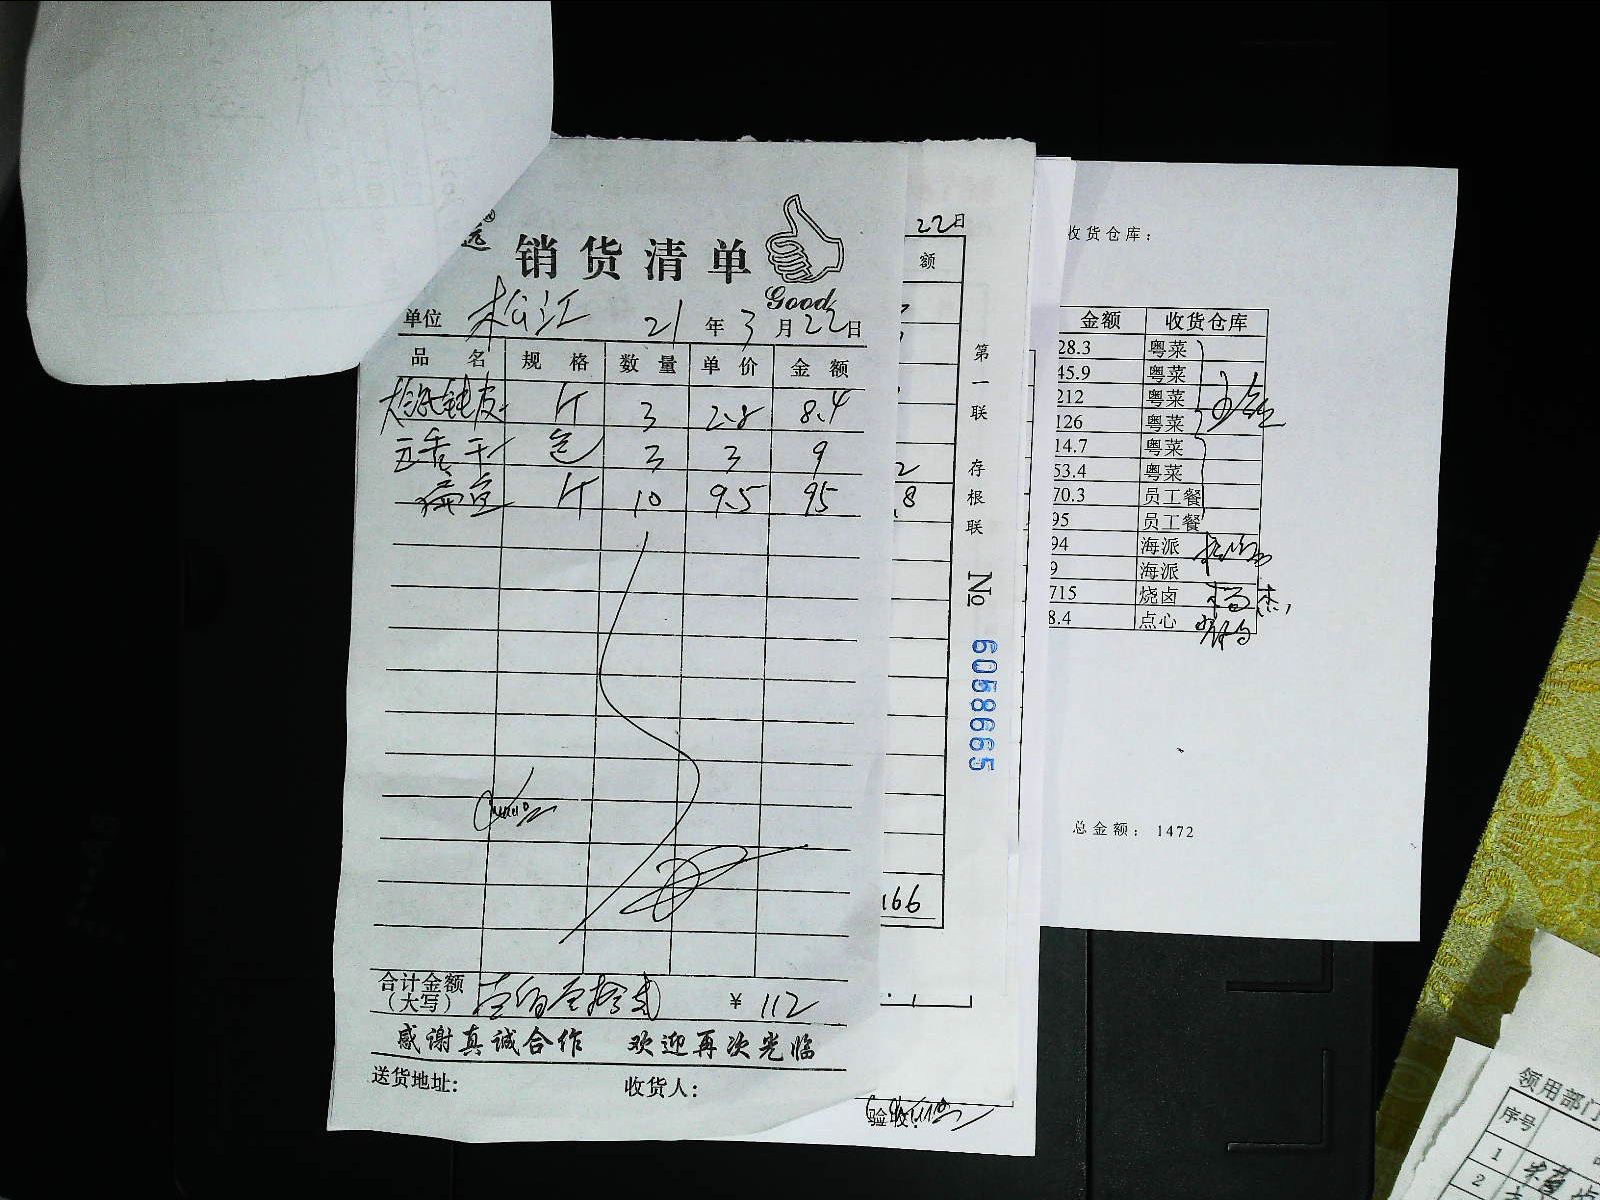 远
销货清单
Good
单位 松江 21年3月22日
品名 规格 数量 单价 金额
馄饨皮 斤 3 2.8 8.4
五香干 包 3 3 9
斤 10 9.5 95
合计金额（大写） 壹佰壹拾贰 ¥ 112
感谢真诚合作 欢迎再次光临
送货地址: 收货人:
22日
额
2
8
166
第一联 存根联
No 6058665
验收:
收货仓库:
金额 收货仓库
28.3 粤菜
45.9 粤菜
212 粤菜
126 粤菜
14.7 粤菜
53.4 粤菜
70.3 员工餐
95 员工餐
94 海派
9 海派
715 烧卤 杨杰
8.4 点心
总金额: 1472
领用部门
序号
1
2